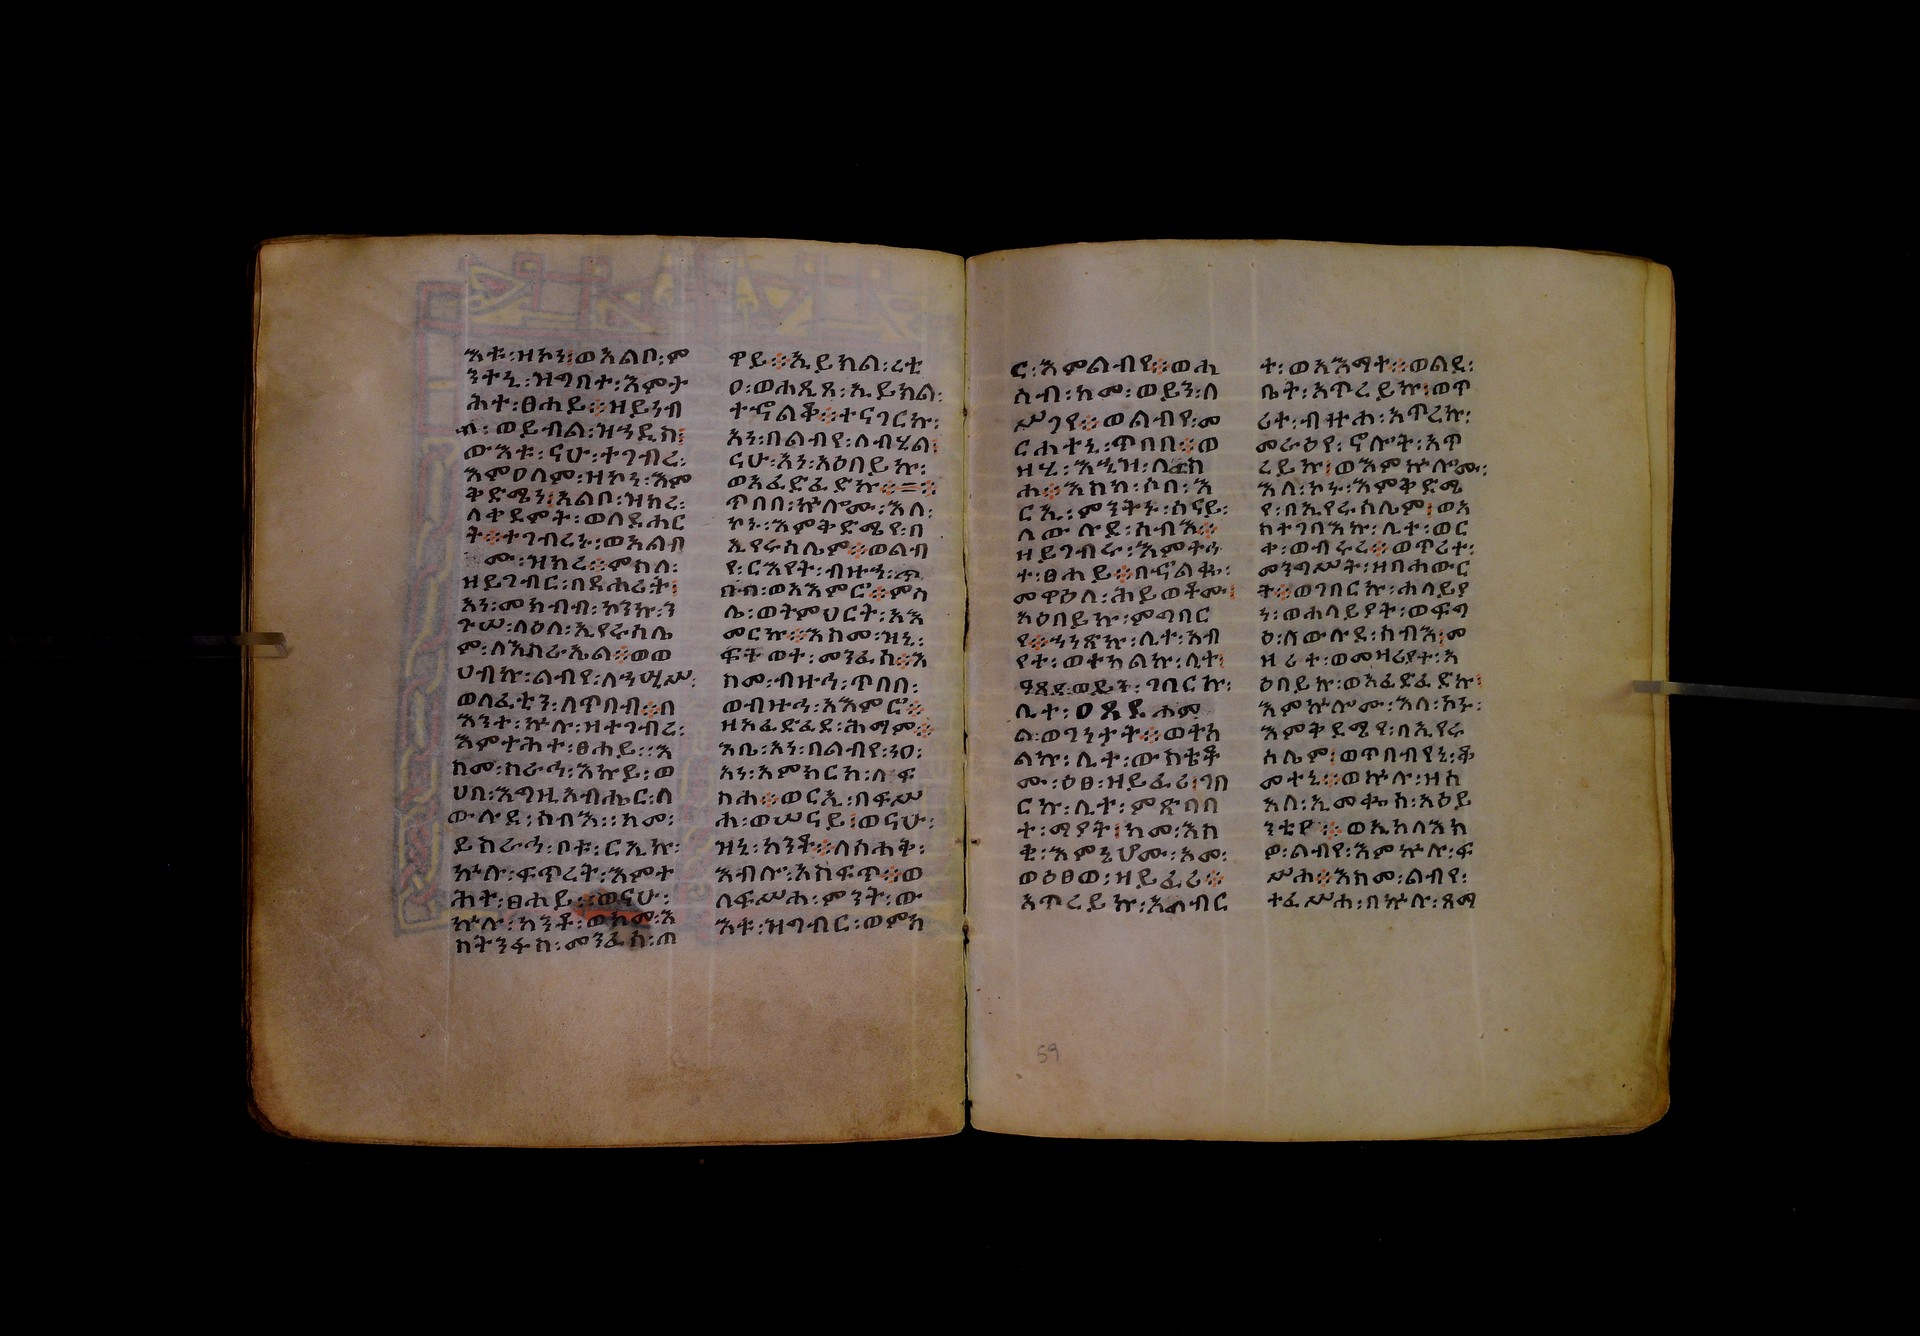 እቱ፡ ዝኮነ፤ ወአልቦ፡ ም
ንተኒ፡ ዝግበተ፡ እምት
ሕተ፡ ፀሐይ ። ዘይነብ
ብ፡ ወይብል፡ ዝኀዲስ፤
ውእቱ፡ ናሁ፡ ተገብረ፡
እምዐለም፡ ዝኮነ፡ እም
ቅድሜነ፤ አልቦ፡ ዝክረ፡
ለቀደምት፡ ወለደሐር
ት ። ተገብረኑ፡ ወአልብ
ሙ፡ ዝክረ ። ምስለ፡
ዘይገብር፡ በደሐሪት፤
አነ፡ መክብብ፡ ኮንኩ፡ ን
ጉሠ፡ ላዕለ፡ ኢየሩሳሌ
ም፡ ለእስራኤል ። ወወ
ሀብኩ፡ ልብየ፡ ለኀሢሥ፡
ወለፈቲን፡ ለጥበብ ። በ
እንተ፡ ኵሉ፡ ዝተገብረ፡
እምተሕተ፡ ፀሐይ ፡፡ እ
ስመ፡ ስራኅ፡ እኩይ፡ ወ
ሀበ፡ እግዚአብሔር፡ ለ
ውሉደ፡ ሰብእ ፡፡ ከመ፡
ይስራኅ፡ ቦቱ፡ ርኢኩ፡
ኵሉ፡ ፍጥረት፡ እምተ
ሕት፡ ፀሐይ ። ወናሁ፡
ኵሉ፡ ከንቶ፡ ወከመ፡ እ
ስትንፋስ፡ መንፈስ፡ ጠ
ዋይ ። ኢይክል፡ ረቲ
ዐ፡ ወሐጺጸ፡ ኢይክል፡
ተኆልቆ ። ተናገርኩ፡
አነ፡ በልብየ፡ ለብሂል፤
ናሁ፡ አነ፡ አዕበይኩ፡
ወአፈድፈድኩ ። = ።
ጥበበ፡ ኵሎሙ፡ እለ፡
ኮኑ፡ እምቅድሜየ፡ በ
ኢየሩሳሌም ። ወልብ
የ፡ ርእየት፡ ብዙኀ፡ ጥ
በበ፡ ወአእምሮ ። ምሳ
ሌ፡ ወትምህርት፡ አእ
መርኩ ። እስመ፡ ዝኒ፡
ፍትወት፡ መንፈስ ። እ
ስመ፡ ብዙኀ፡ ጥበበ፡
ወብዙኀ፡ አእምሮ ።
ዘአፈድፈደ፡ ሕማም ።
እቤ፡ አነ፡ በልብየ፡ ነዐ፡
አነ፡ እምከርከ፡ ለፍ
ስሐ ። ወርኢ፡ በፍሥ
ሐ፡ ወሠናይ፤ ወናሁ፡
ዝኒ፡ ከንቶ ። ለስሐቅ፡
እብሎ፡ እስፍጥ ። ወ
ለፍሥሐ፡ ምንት፡ ው
እቱ፡ ዝግብር፡ ወምክ
ር፡ እምልብየ ። ወሒ
ስብ፡ ከመ፡ ወይን፡ ለ
ሥጋየ ። ወልብየ፡ መ
ርሐተኒ፡ ጥበበ ። ወ
ዘሂ፡ እኂዝ፡ ለፌስ
ሐ ። እስከ፡ ሶበ፡ እ
ርኢ፡ ምንትኑ፡ ሰናይ፡
ለውሉደ፡ ሰብእ ።
ዘይገብሩ፡ እምትሕ
ተ፡ ፀሐይ ። በኆልቈ፡
መዋዕለ፡ ሕይወቶሙ፤
አዕበይኩ፡ ምግባር
የ ። ሐነጽኩ፡ ሊተ፡ አብ
የተ፡ ወተከልኩ፡ ሊተ፤
ዓጸደ፡ ወይን፡ ገበርኩ፡
ሊተ፡ ዐጸደ፡ ሐመ
ል፡ ወገነታት ። ወተከ
ልኩ፡ ሊተ፡ ውስቴቶ
ሙ፡ ዕፀ፡ ዘይፈሪ፤ ገበ
ርኩ፡ ሊተ፡ ምጽበበ
ተ፡ ማያት፤ ከመ፡ አስ
ቂ፡ እምኔሆሙ፡ አመ፡
ወዕፀወ፡ ዘይፈሪ ።
አጥረይኩ፡ አግብር
ተ፡ ወአእማት ። ወልደ፡
ቤት፡ አጥረይኩ፤ ወጥ
ሪት፡ ብዙሐ፡ አጥረኩ፡
መራዕየ፡ ኆሎት፡ አጥ
ረይኩ፤ ወእምኵሎሙ፡
እለ፡ ኮኑ፡ እምቅድሜ
የ፡ በኢየሩሳሌም፤ ወአ
ስተጋባእኩ፡ ሊተ፡ ወር
ቀ፡ ወብሩረ ። ወጥሪተ፡
መንግሥት፡ ዘበሐውር
ት ። ወገበርኩ፡ ሐላይያ
ን፡ ወሐላይያት፡ ወፍግ
ዕ፡ ለውሉደ፡ ሰብእ፤ መ
ዝሪተ፡ ወመዝሪያተ፡ አ
ዕበይኩ፡ ወአፈድፈድኩ፤
እምኵሎሙ፡ እለ፡ ኮኑ፡
እምቅድሜየ፡ በኢየሩ
ሳሌም፤ ወጥበብየኒ፡ ቆ
መተኒ ። ወኵሉ፡ ዝስ
አለ፡ ኢመቈስ፡ አዕይ
ንቲየ ። ወኢከላእክ
ዎ፡ ልብየ፡ እምኵሉ፡ ፍ
ሥሐ ። እስመ፡ ልብየ፡
ተፈሥሐ፡ በኵሉ፡ ጻማ
59